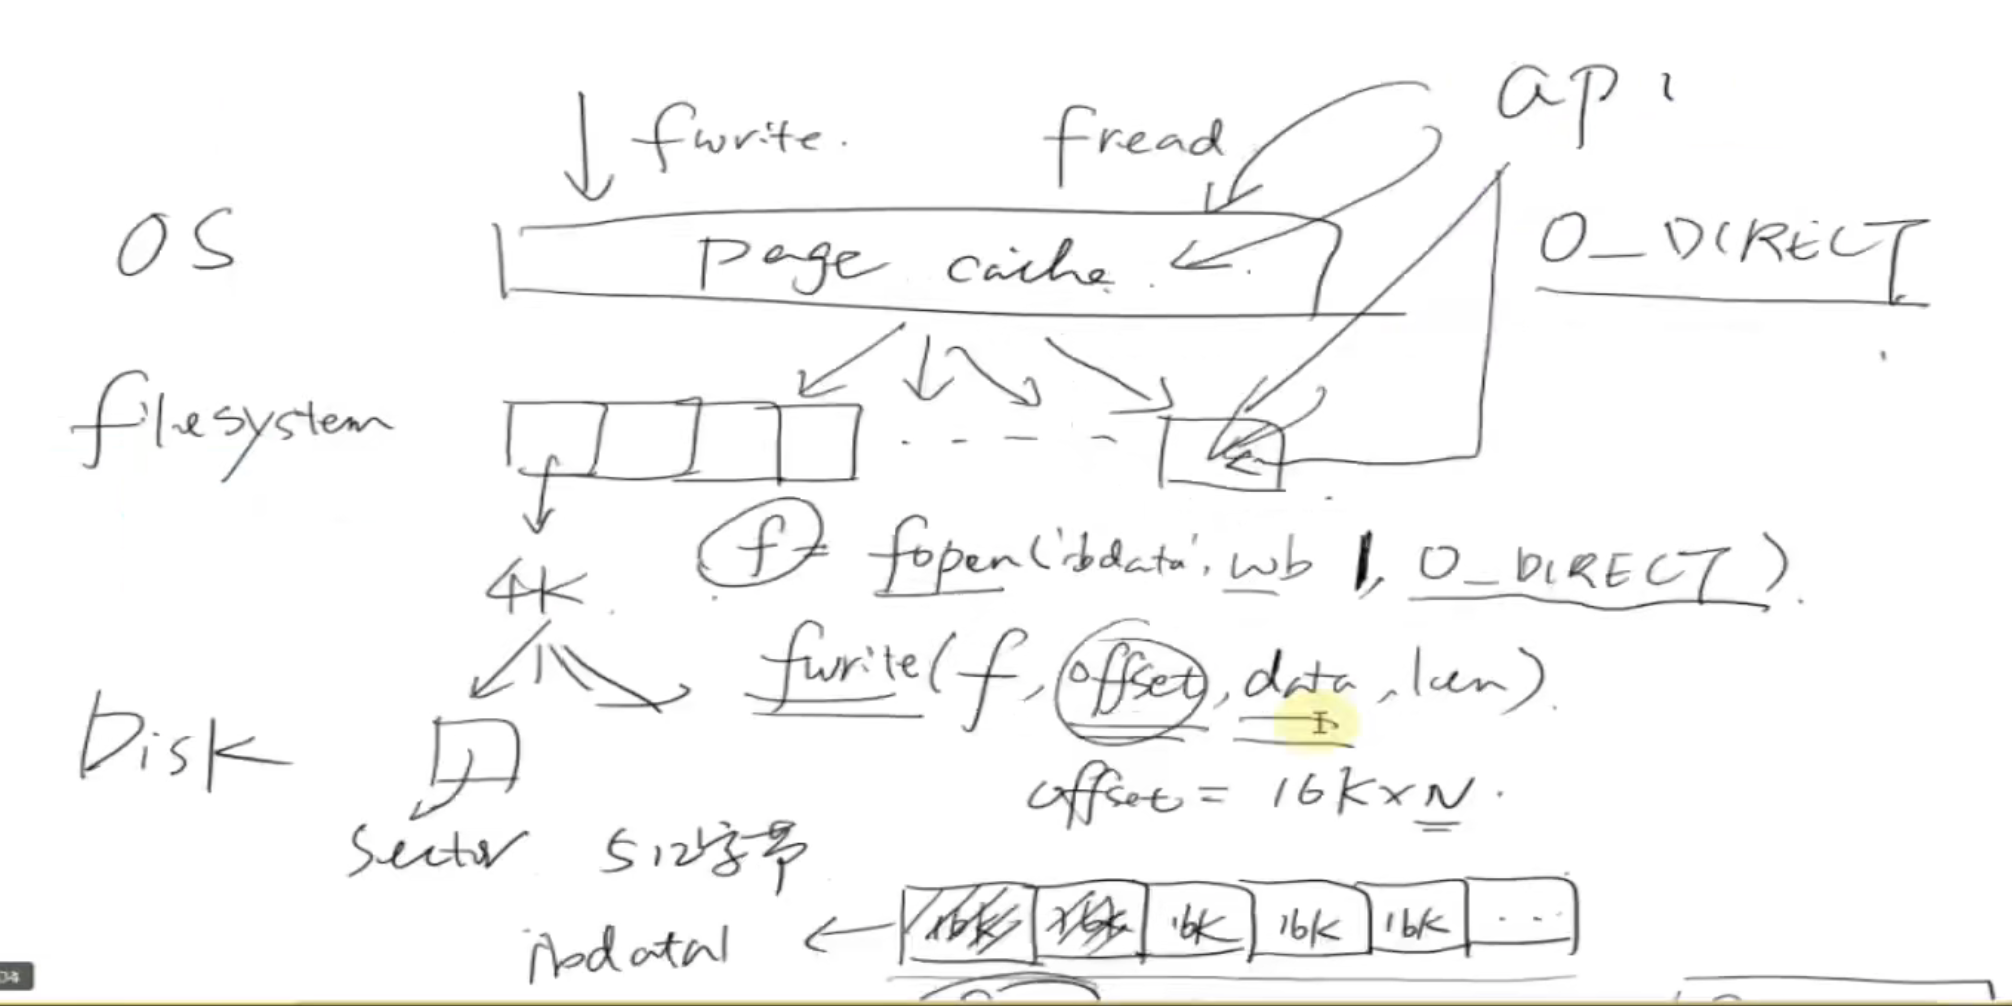 api
fwrite. fread
OS page cache. O_DIRECT
filesystem
4K f = fopen('ibdata', wb |, O_DIRECT).
fwrite(f, offset, data, len).
Disk
offset = 16K×N.
Sector 512字节
ibdata1 16K 16K 16K 16K 16K ...
04